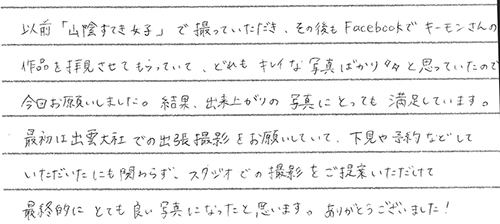 以前「山陰すてき女子」で撮っていただき、その後もFacebookでキーモンさんの
作品を拝見させてもらっていて、どれもキレイな写真ばかり々々と思っていたので
今回お願いしました。結果、出来上がりの写真にとっても満足しています。
最初は出雲大社での出張撮影をお願いしていて、下見や予約などして
いただいたにも関わらず、スタジオでの撮影をご提案いただけて
最終的にとても良い写真になったと思います。ありがとうございました!